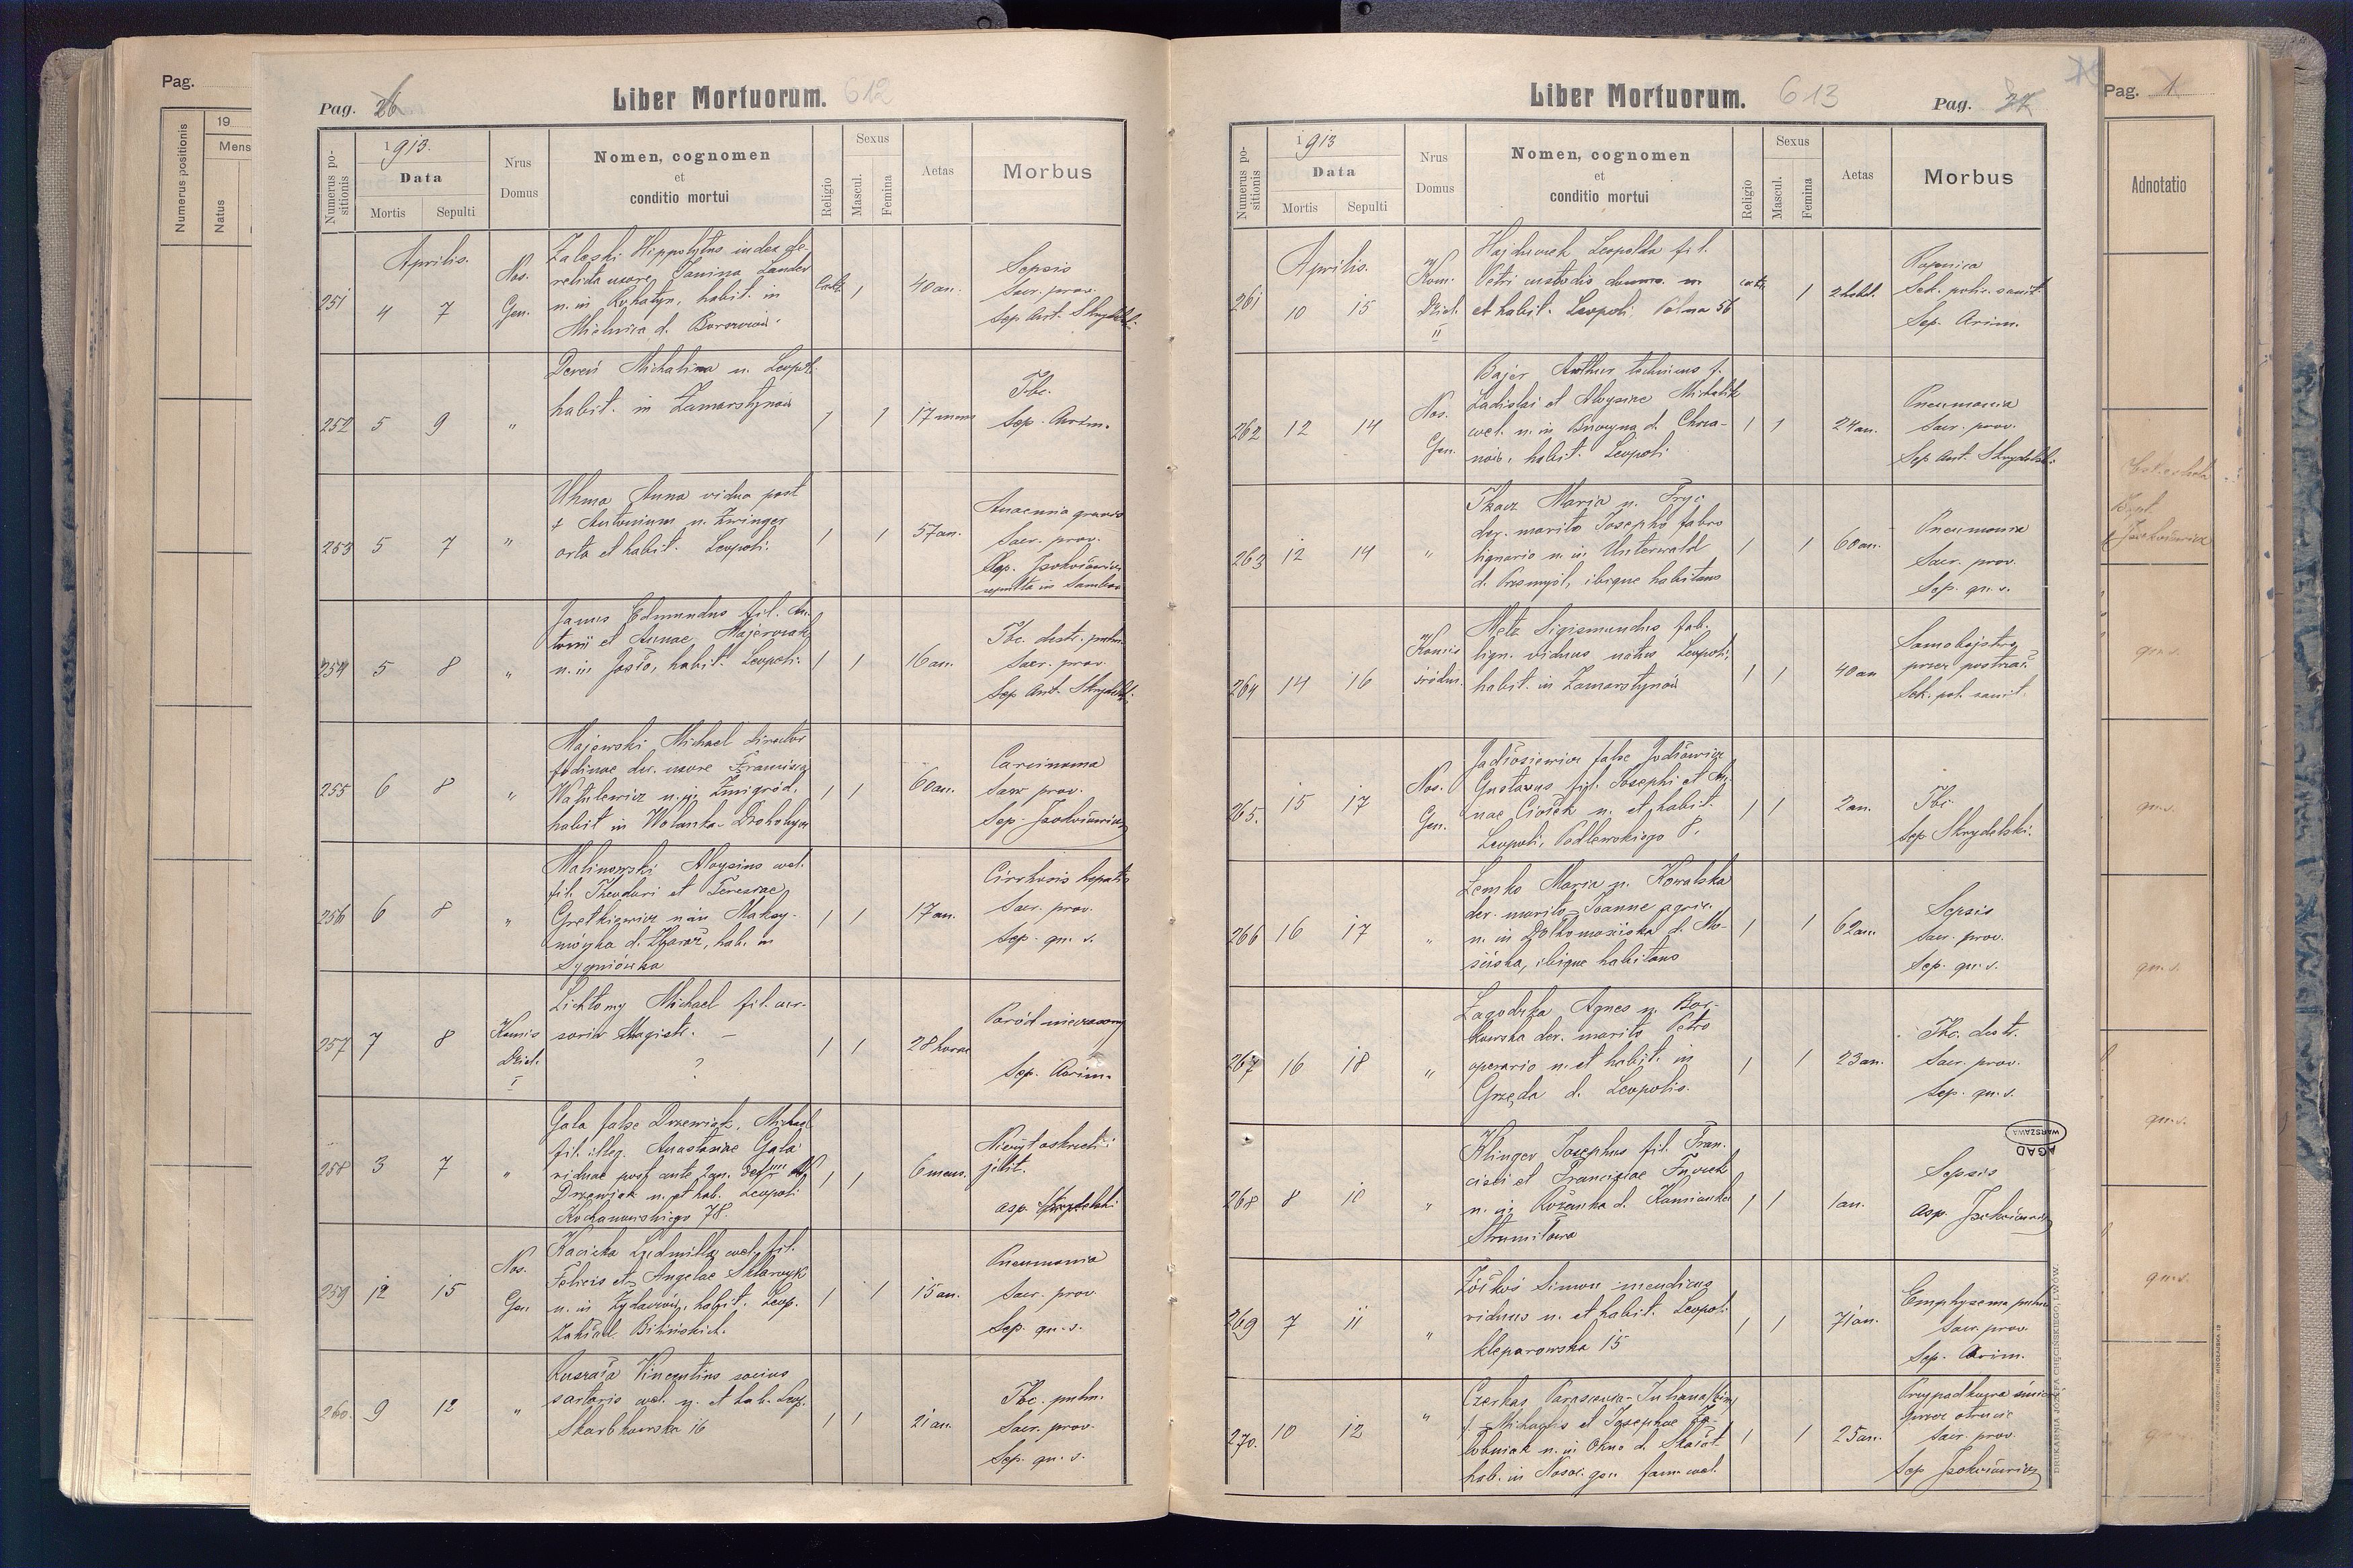 Pag.
19
Mens
Numerus positionis
Natus
Pag. 26
Liber Mortuorum. 612
Numerus positionis
1913.
Data
Mortis
Sepulti
Nrus
Domus
Nomen, cognomen
et
conditio mortui
Religio
Sexus
Mascul.
Femina
Aetas
Morbus
Aprilis.
251
4
7
Nos.
Gen.
Zaleski Hippolytus iudex de-
relicta uxore Janina Lander
n. in Rohatyn, habit. in
Mielnica d.
Cath.
1
40 an.
Sepsis
Sacr. prov.
Sep Ant. Skrydelski
252
5
9
"
Dereń Michalina n. Leopol.
habit. in Zamarstynów
1
17 mens
Tbc.
Sep. Avrim.
253
5
7
"
Uhma Anna vidua post
† Antonium n. Zwinger
orta et habit. Leopoli.
1
57 an.
Anaemia gravis
Sacr. prov.
Sep.
sepulta in Sambor
254
5
8
"
Janus Edmundus fil. An-
tonii et Annae
n. in Jasło, habit. Leopoli.
1
16 an.
Tbc. destr. pulm.
Sacr. prov.
Sep Ant. Skrydelski
255
6
8
"
Majewski Michael director
fodinae der. uxore Francisca
n. in Żmigród,
habit in Wolanka - Drohobycz
1
60 an.
Carcinoma
Sacr prov.
Sep.
256
6
8
"
Malinowski Aloysius cael.
fil. Theodori et Teresiae
Gretkiewicz n. in Maksy-
mówka d. Zbaraż, hab. in
Sygniówka
1
17 an.
Cirrhosis hepatis
Sacr. prov.
Sep. qu. s.
257
7
8
Komis
Dziel.
I
Lichtomy Michael fil. cur-
soris Magistr. —
?
1
28 horae
Poród niewczesny
Sep. Avrim.
258
3
7
"
Gala false Drzewiak, Michael
fil. illeg. Anastasiae Gala
viduae post ante 2 an.
Drzewiak n. et hab. Leopoli
Kochanowskiego 78.
1
6 mens.
Nieżyt oskrzeli i
jelit.
asp. Skrydelski
259
12
15
Nos.
Gen.
Kacicka Ludmilla cael. fil.
Felicis et Angelae
n. in Żydaczów, habit. Leop.
Zakład. Bilińskich.
1
15 an.
Pneumonia
Sacr. prov.
Sep. qu. s.
260.
9
12
"
Vincentius socius
sartoris cael. n. et hab. Leop.
Skarbkowska 16
1
21 an.
Tbc. pulm.
Sacr. prov.
Sep. qu. s.
Liber Mortuorum. 613
Pag. 27
Numerus positionis
1913
Data
Mortis
Sepulti
Nrus
Domus
Nomen, cognomen
et
conditio mortui
Religio
Sexus
Mascul.
Femina
Aetas
Morbus
Aprilis.
261
10
15
Kom.
Dziel.
II
Leopolda fil.
Petri custodis domus n.
et habit. Leopoli. Polna 56
cath.
1
2 hebd.
Ropnica
Sek. polic. sanit.
Sep. Avrim.
262
12
14
Nos.
Gen.
Bajer Arthur technicus f.
Ladislai et Aloysiae Michalik
cael. n. in d. Chrza-
nów, habit. Leopoli
1
1
24 an.
Pneumonia
Sacr. prov.
Sep Ant. Skrydelski
263
12
14
"
Tkacz Maria n. Fryc
der. marito Josepho fabro
lignario n. in Unterwald
d. Przemyśl, ibique habitans
1
1
60 an.
Pneumonia
Sacr. prov.
Sep. qu. s.
264
14
16
Komis
śródm.
Metz Sigismundus fab.
lign. viduus natus Leopoli,
habit. in Zamarstynów
1
1
40 an
Samobójstwo
przez postrzał
Sek. pol. sanit.
265.
15
17
Nos.
Gen.
Gustavus fil. Josephi et An-
nae Ciołek n. et habit.
Leopoli, Podlewskiego 8.
1
1
2 an.
Tbc.
Sep Skrydelski.
266
16
17
"
Lemko Maria n. Kowalska
der. marito Joanne agric.
n. in d. Mo-
ściska, ibique habitans
1
1
62 an.
Sepsis
Sacr. prov.
Sep. qu. s.
267
16
18
"
Zagodzka Agnes n. Bor-
kowska der. marito Petro
operario n. et habit. in
Grzęda d. Leopolis.
1
1
23 an.
Tbc. destr.
Sacr. prov.
Sep. qu. s.
268
8
10
"
Klinger Josephus fil. Fran-
cisci et Franciscae
n. in Różanka d. Kamionka
Strumiłowa
1
1
1 an.
Sepsis
asp.
269
7
11
"
Simon mendicus
viduus n. et habit. Leopoli
Kleparowska 15
1
1
71 an.
Emphysema pulm.
Sacr. prov.
Sep. Avrim.
270.
10
12
"
Czerkas Parascevia - Juliana
f. Michaelis et Josephae
n. in Okno d. Skałat
hab. in Nosoc. gen. fam. cael.
1
1
25 an.
przez otrucie
Sacr. prov.
Sep
AGAD
WARSZAWA
DRUKARNIA JÓZEFA CHĘCIŃSKIEGO, LWÓW.
Pag. 1
Adnotatio
qu. s.
qu. s.
qu. s.
qu. s.
qu. s.